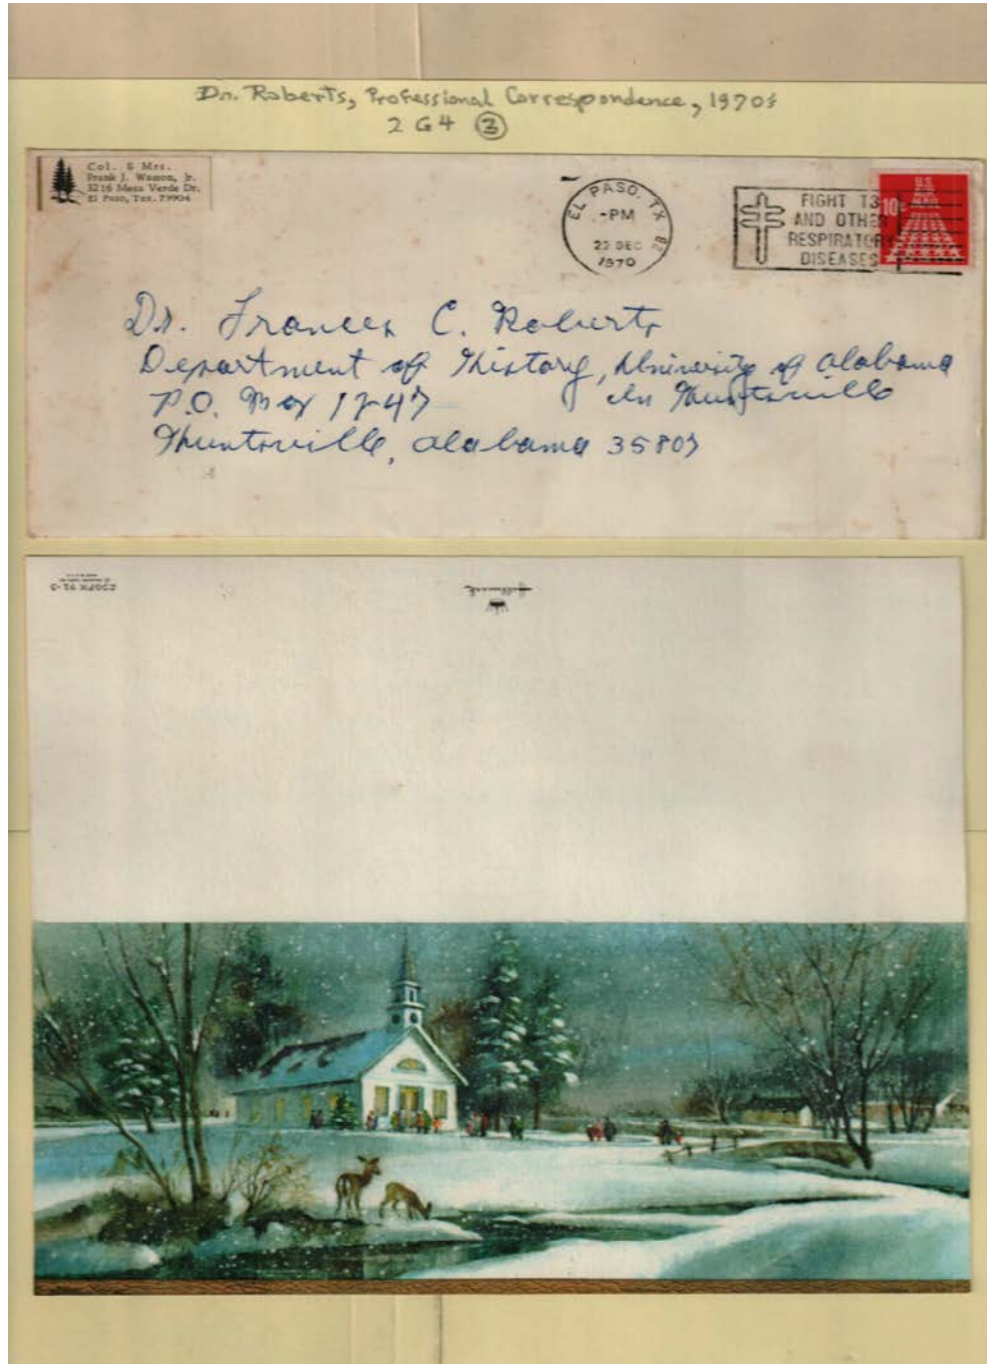 Dr. Roberts, Professional Correspondence, 1970s
2 G 4 ③
Col. & Mrs.
Frank J. Wasson, Jr.
3216 Mesa Verde Dr.
El Paso, Tex. 79904
EL PASO, TX
-PM
22 DEC
1970
FIGHT TB
AND OTHER
RESPIRATORY
DISEASES
U.S.
AIR MAIL
10c
Dr. Frances C. Roberts
Department of History, University of Alabama
P.O. Box 1247 in Huntsville
Huntsville, Alabama 35807
Hallmark